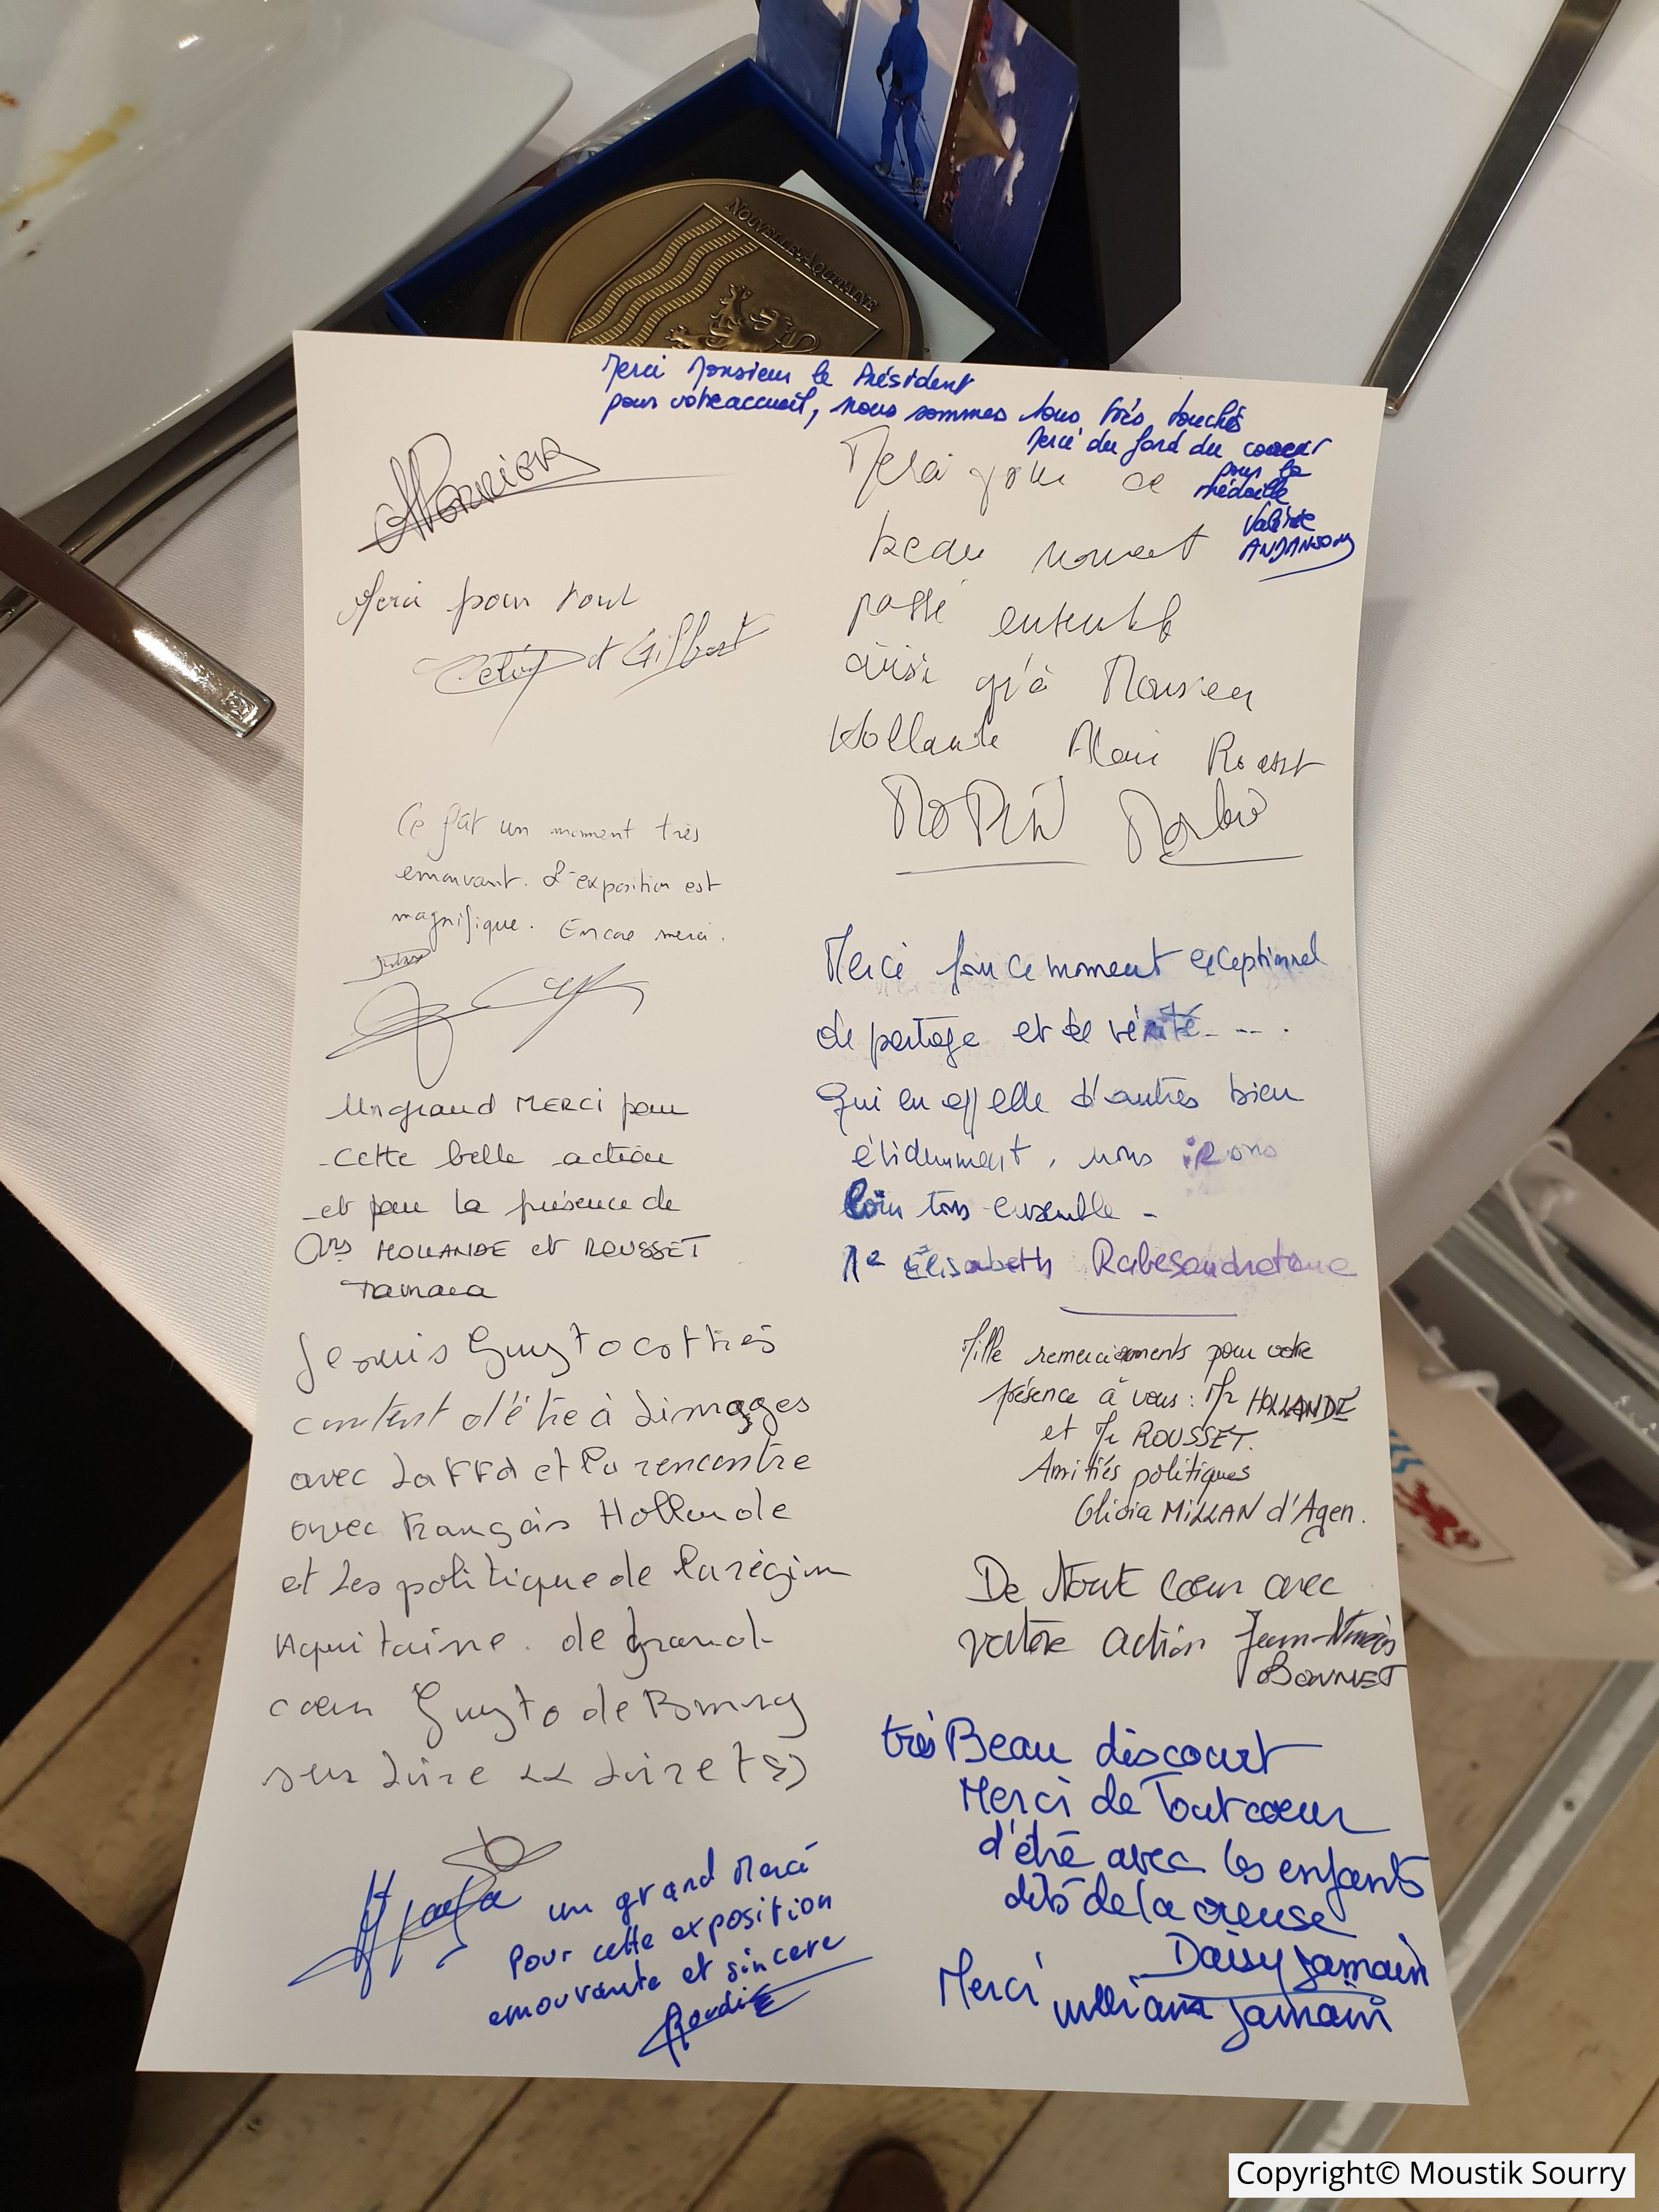 NOUVELLE-AQUITAINE
Merci Monsieur le Président
pour votre accueil, nous sommes tous très touchés
Merci du fond du coeur
pour la
médaille
Valérie
ANDANSON
Merci pour tout
et Gilbert
Merci pour ce
beau moment
passé ensemble
ainsi qu'à Monsieur
Hollande Alain Rousset
Ce fût un moment très
emouvant. L'exposition est
magnifique. Encore merci.
Un grand MERCI pour
cette belle action
et pour la présence de
Mrs HOLLANDE et ROUSSET
Tamara
Merci pour ce moment exceptionnel
de partage et de vérité - - - .
Qui en appelle d'autres bien
évidemment, nous irons
loin tous ensemble -
Élisabeth
Mille remerciements pour votre
présence à vous : Mr HOLLANDE
et Mr ROUSSET.
Amitiés politiques
MILLAN d'Agen.
Je suis Guyto
contant d'être à Limoges
avec La FFd et la rencontre
avec François Hollande
et Les politique de la région
Aquitaine. de grand
coeur Guyto de
sur Loire << Loiret >>
De tout coeur avec
votre action Jean-
BONNET
très Beau discourt
Merci de Tout coeur
d'étre avec les enfants
dits de la creuse
Daisy Jamain
Merci william Jamain
un grand Merci
Pour cette exposition
emouvante et sincere
Copyright© Moustik Sourry